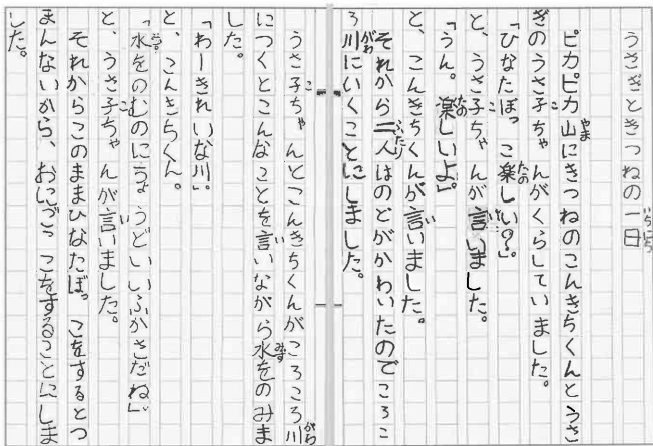 うさぎときつねの一日
ピカピカ山にきつねのこんきちくんとうさ
ぎのうさ子ちゃんがくらしていました。
「ひなたぼっこ楽しい？」
と、うさ子ちゃんが言いました。
「うん。楽しいよ」
と、こんきちくんが言いました。
それから二人はのどがかわいたのでころこ
ろ川にいくことにしました。
うさ子ちゃんとこんきちくんがころころ川
につくとこんなことを言いながら水をのみま
した。
「わーきれいな川」
と、こんきちくん。
「水をのむのにちょうどいいふかさだね」
と、うさ子ちゃんが言いました。
それからこのままひなたぼっこをするとつ
まんないから、おにごっこをすることにしま
した。